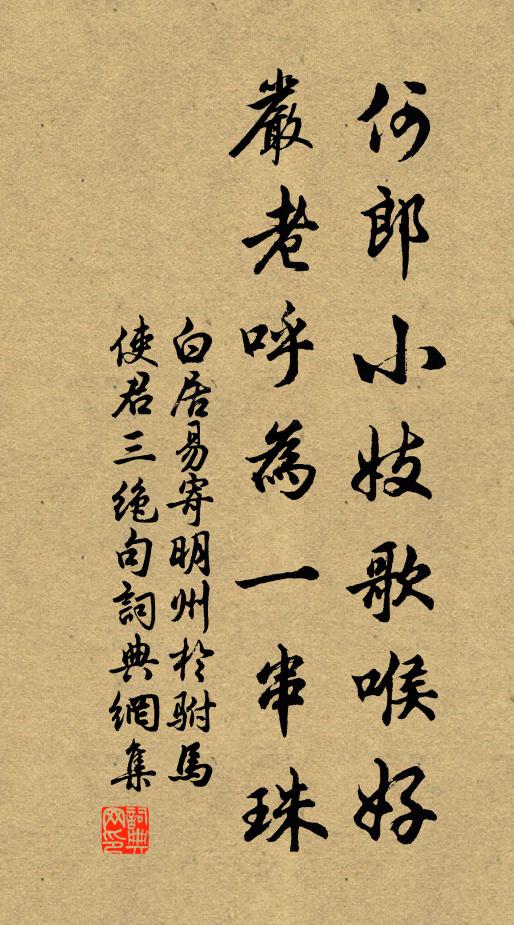 何郎小妓歌喉好
嚴老呼為一串珠
白居易寄明州於駙馬
使君三絕句詞典網集
詞典网印